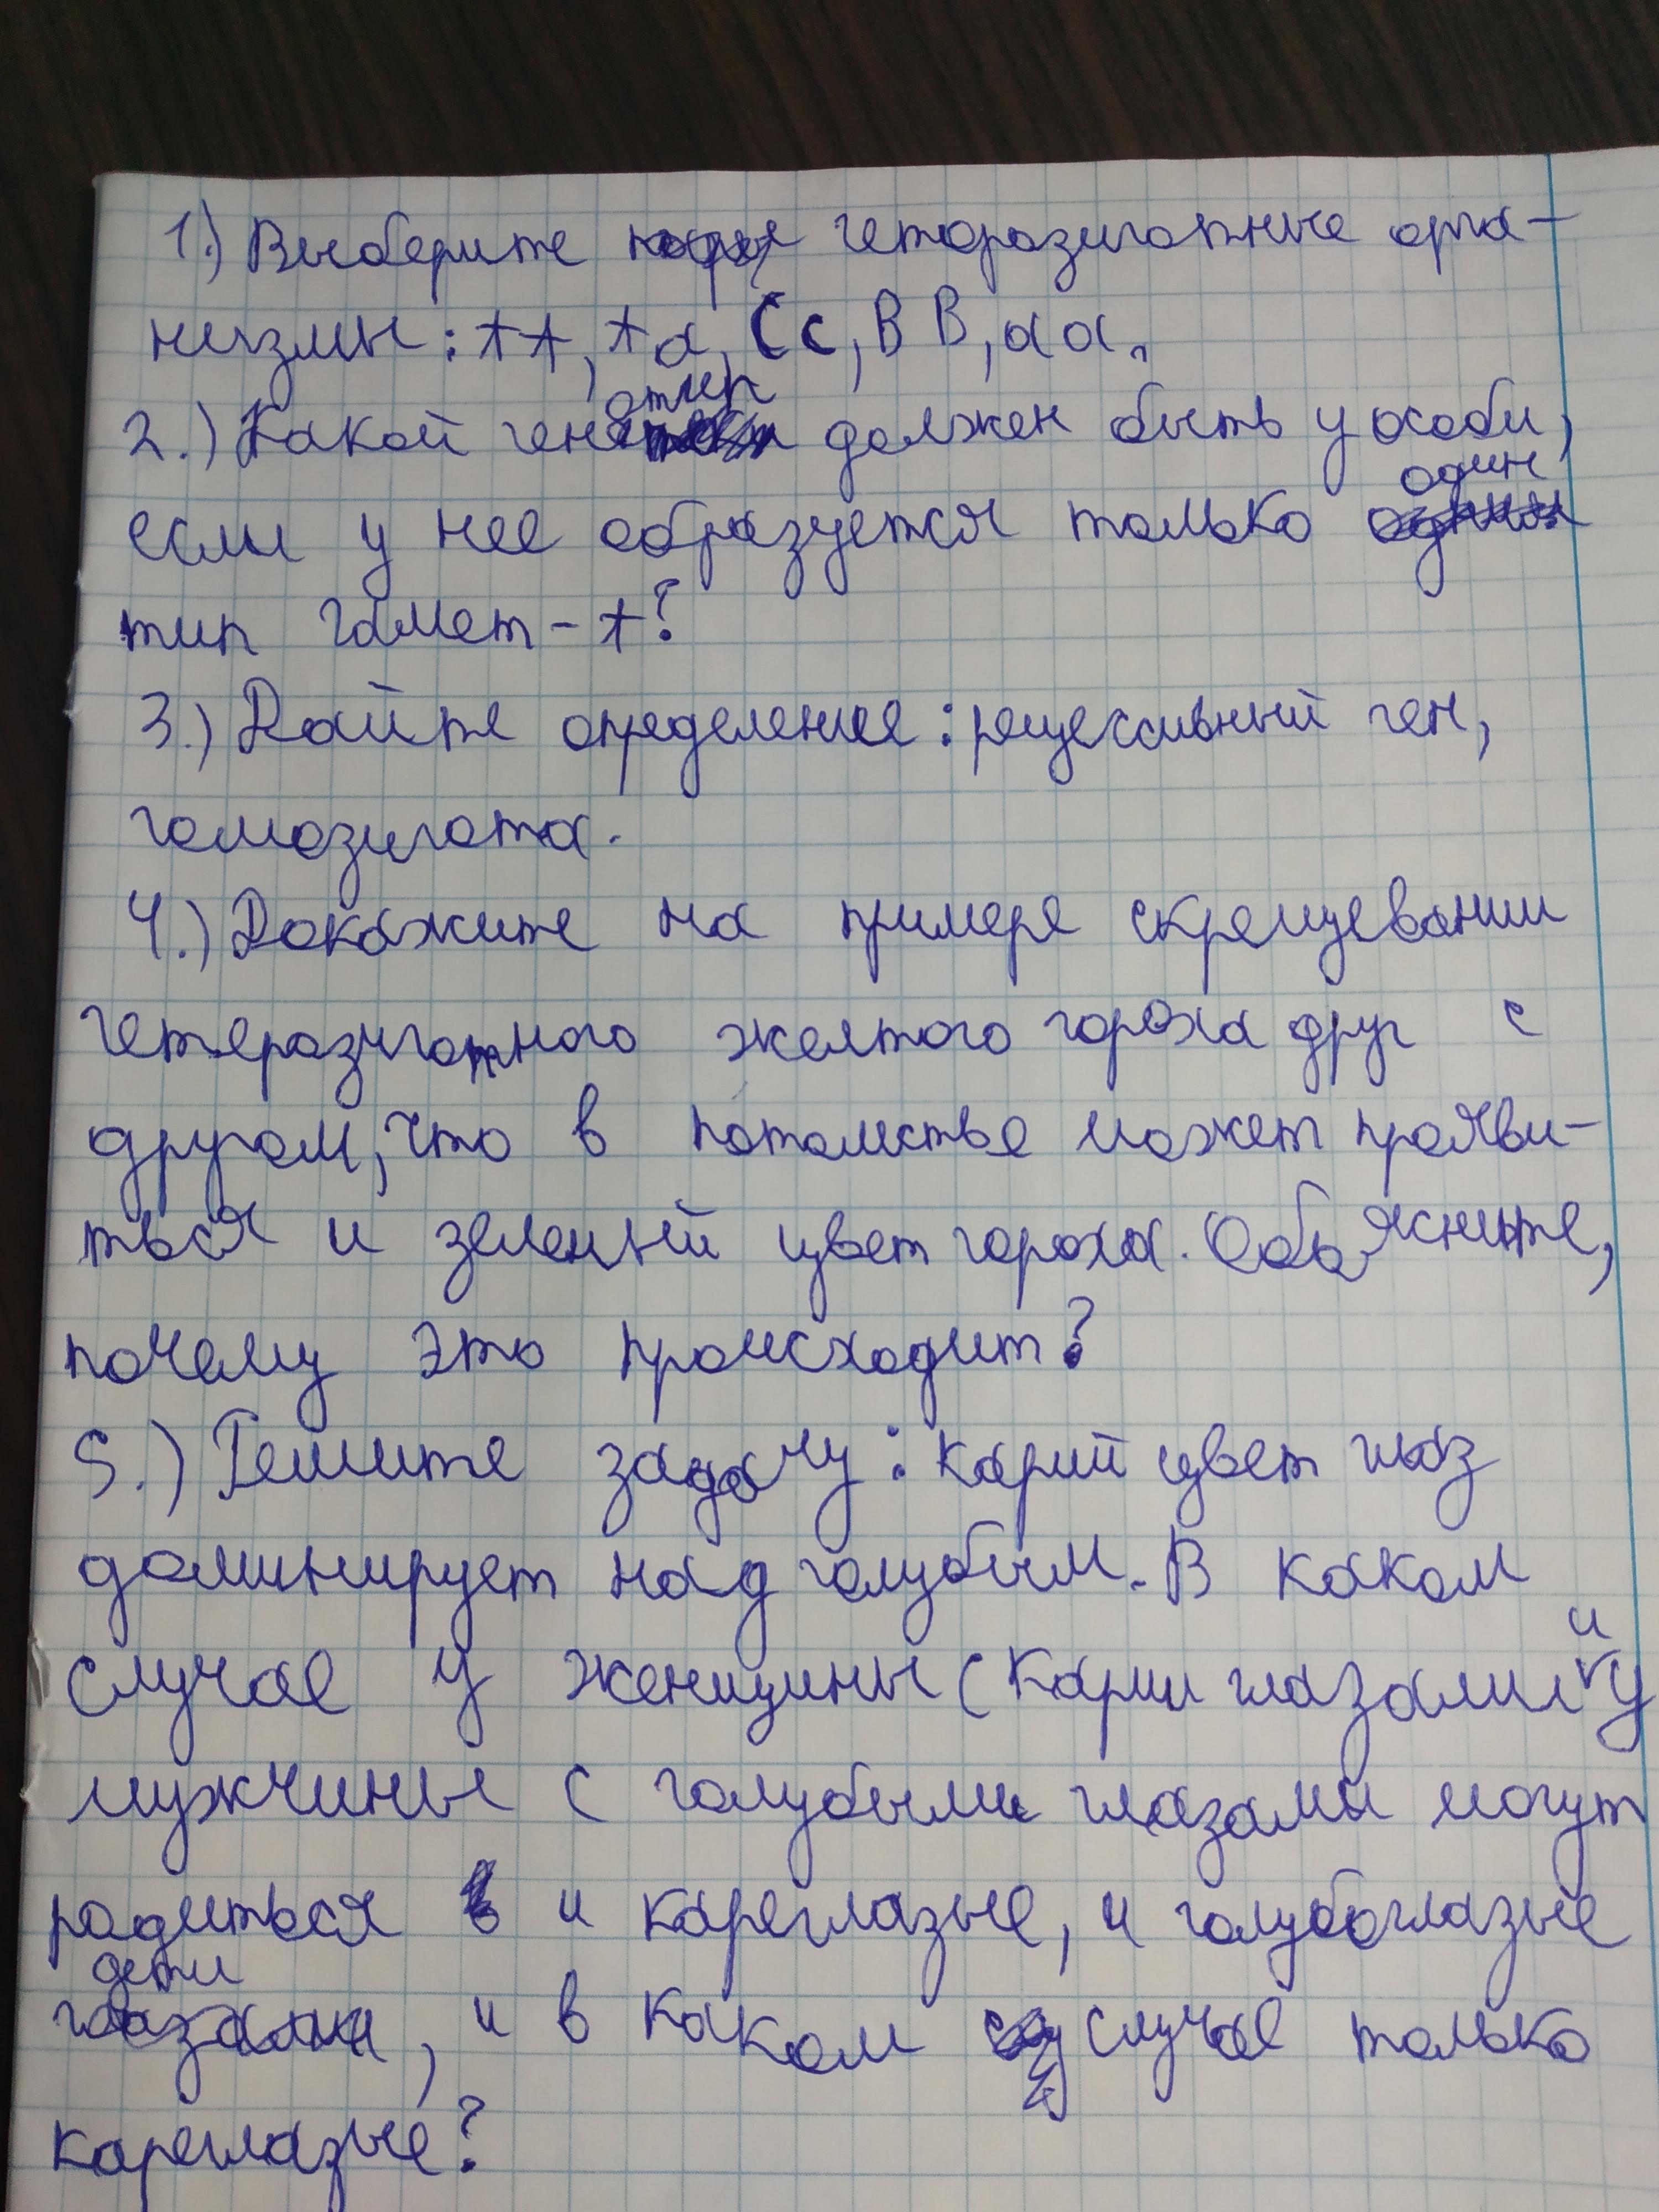 1.) Выберите геторозиготные орга-
низмы: АА, Аа, Сс, ВВ, аа.
2.) Какой генотип должен быть у особи,
если у нее образуется только один
тип гамет - А?
3.) Дайте определение: рецессивный ген,
гомозигота.
4.) Докажите на примере скрещевании
гетерозиготного желтого гороха друг с
другом, что в потомстве может прояви-
ться и зеленый цвет гороха. Объясните,
почему это происходит?
5.) Решите задачу: карий цвет глаз
доминирует над голубым. В каком
случае у женщины с карим глазами и у
мужчины с голубыми глазами могут
родиться и кареглазые, и голубоглазые
дети, и в каком случае только
кареглазые?